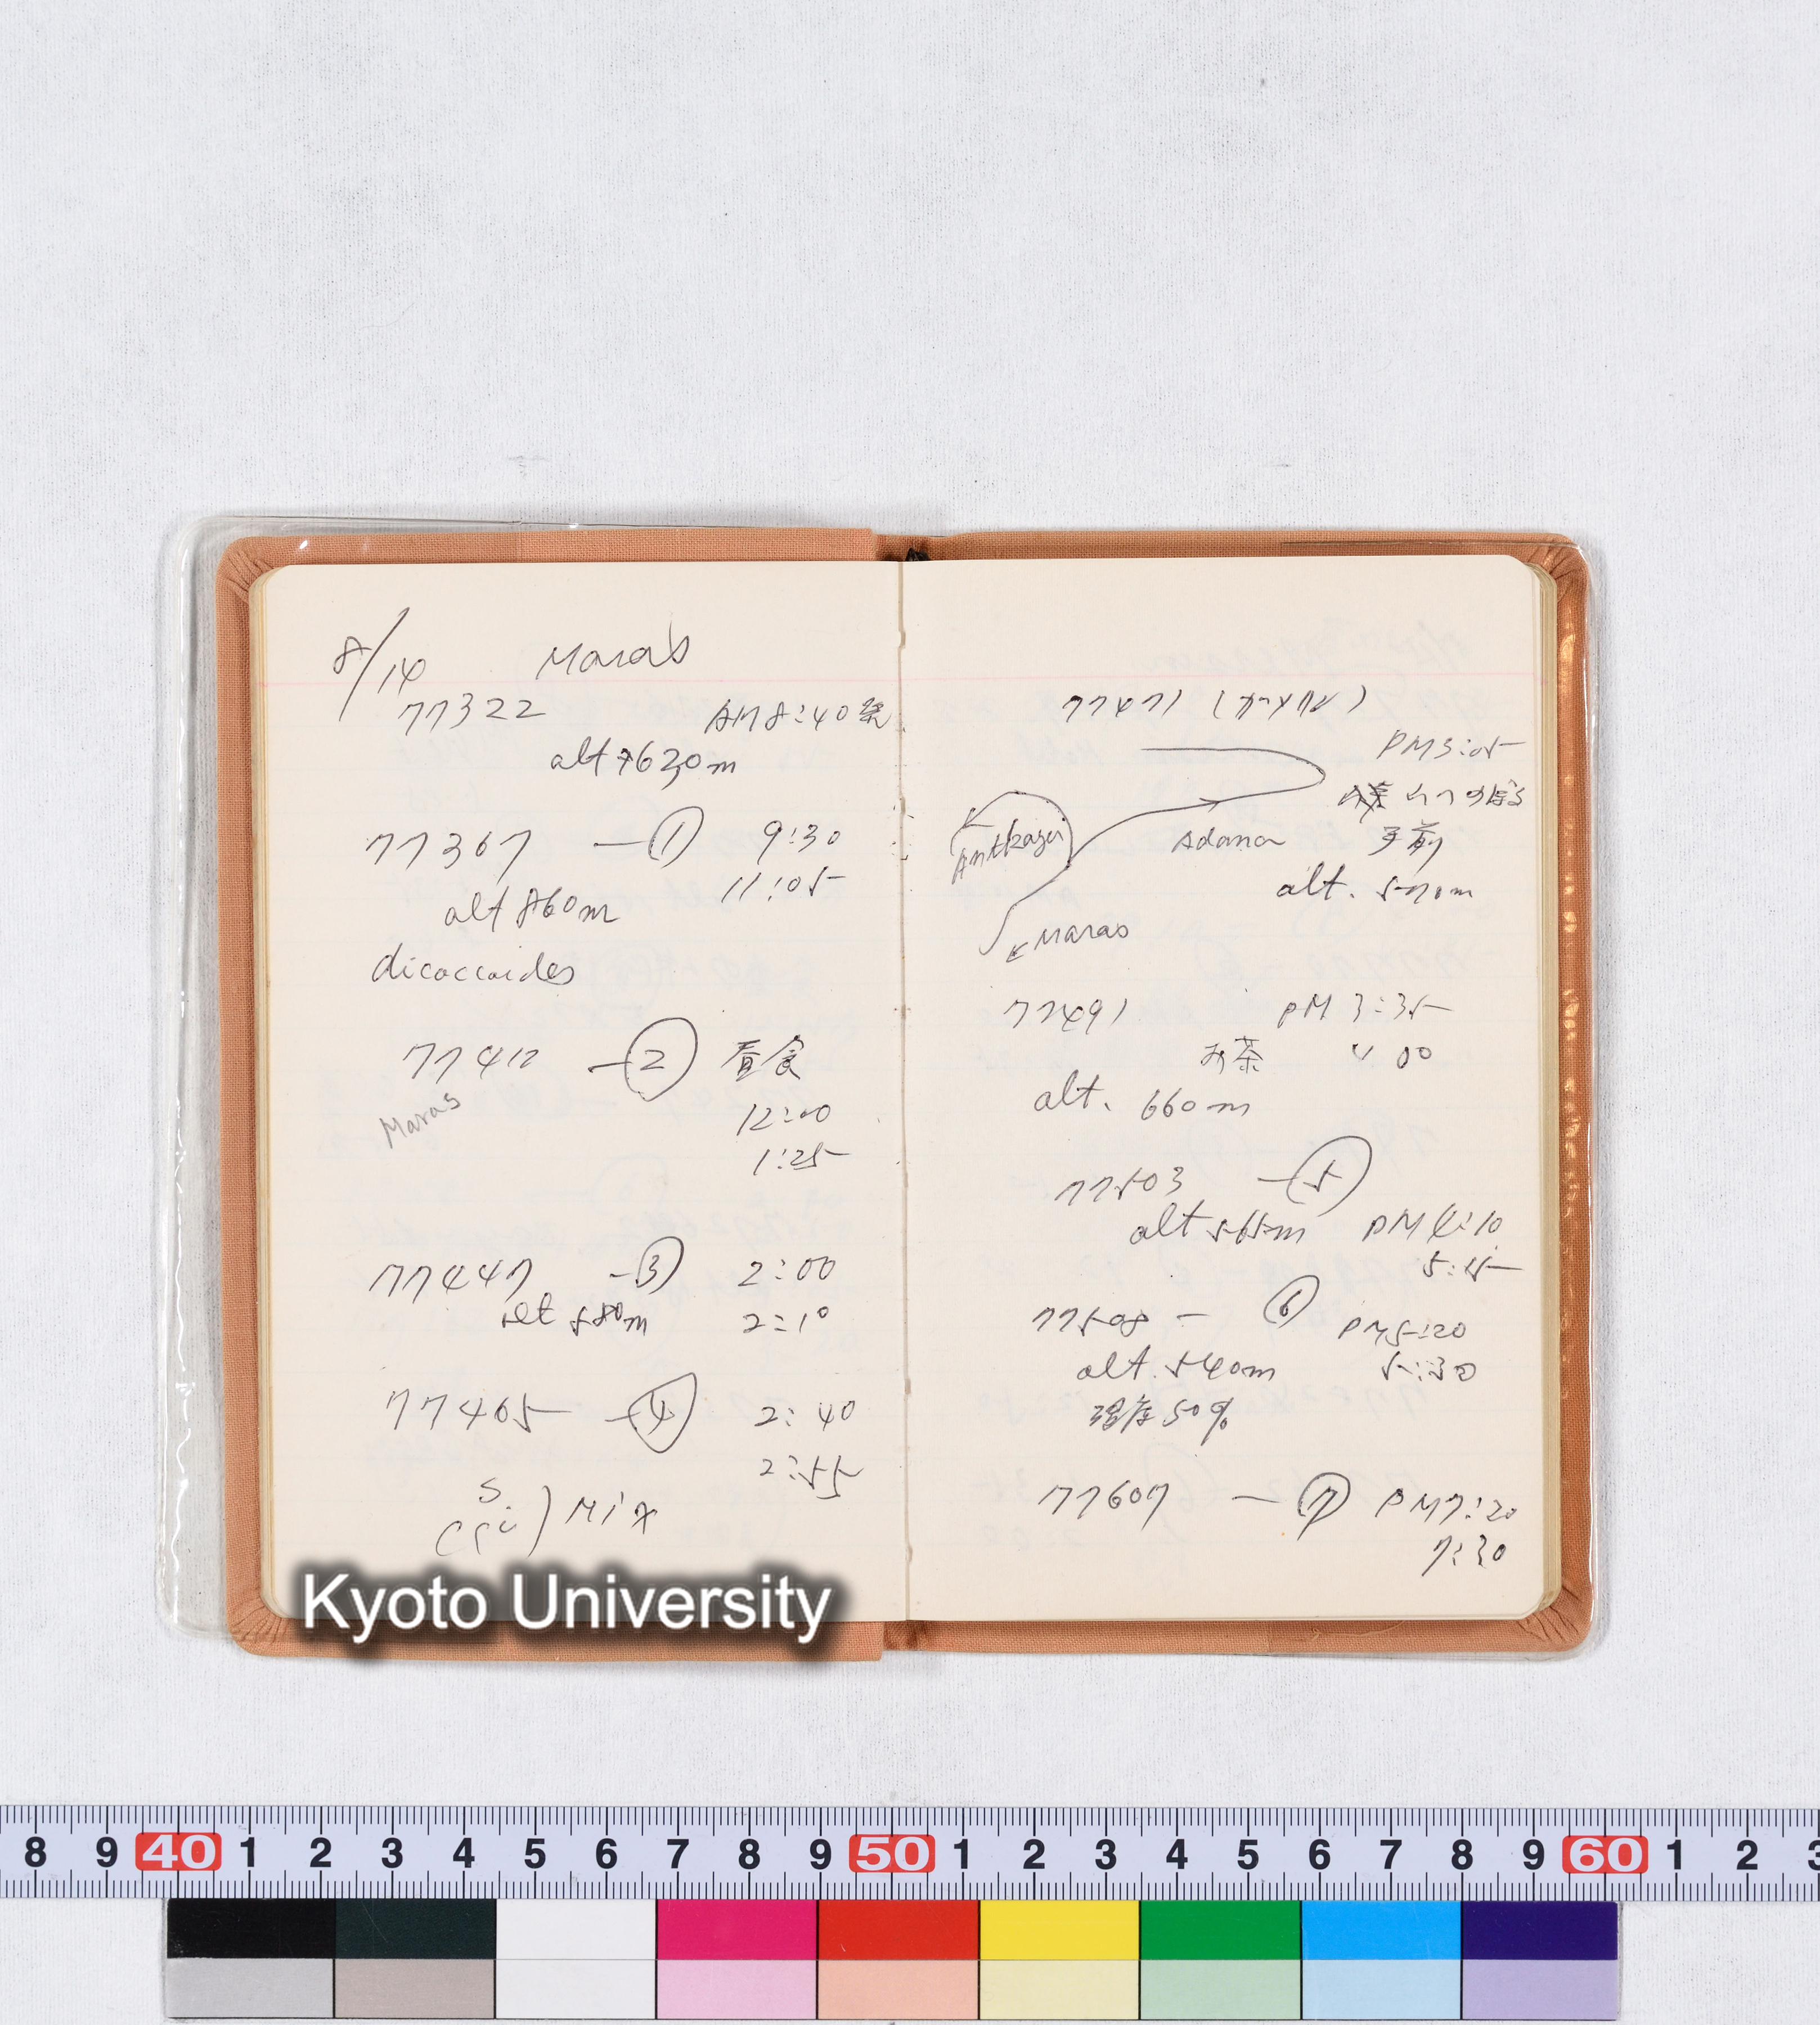 8/14 Maras
77322 AM 8:40発
alt 630m
77367 — ① 9:30
11:05
alt 860m
dicoccoides
77412 — ② 昼食
Maras
12:00
1:25
77447 — ③ 2:00
alt 580m 2:10
77465 — ④ 2:40
2:55
S.
) Mix
77471
PM3:05
のぼる
手前
Adana
alt. 570m
Maras
77491 PM 3:35
お茶 〃 00
alt. 660m
77503 — ⑤
alt 565m PM 4:10
5:15
77508 — ⑥ PM5:20
alt. 540m 5:30
湿度 50%
77607 — ⑦ PM7:20
7:30
Kyoto University
8 9 40 1 2 3 4 5 6 7 8 9 50 1 2 3 4 5 6 7 8 9 60 1 2 3